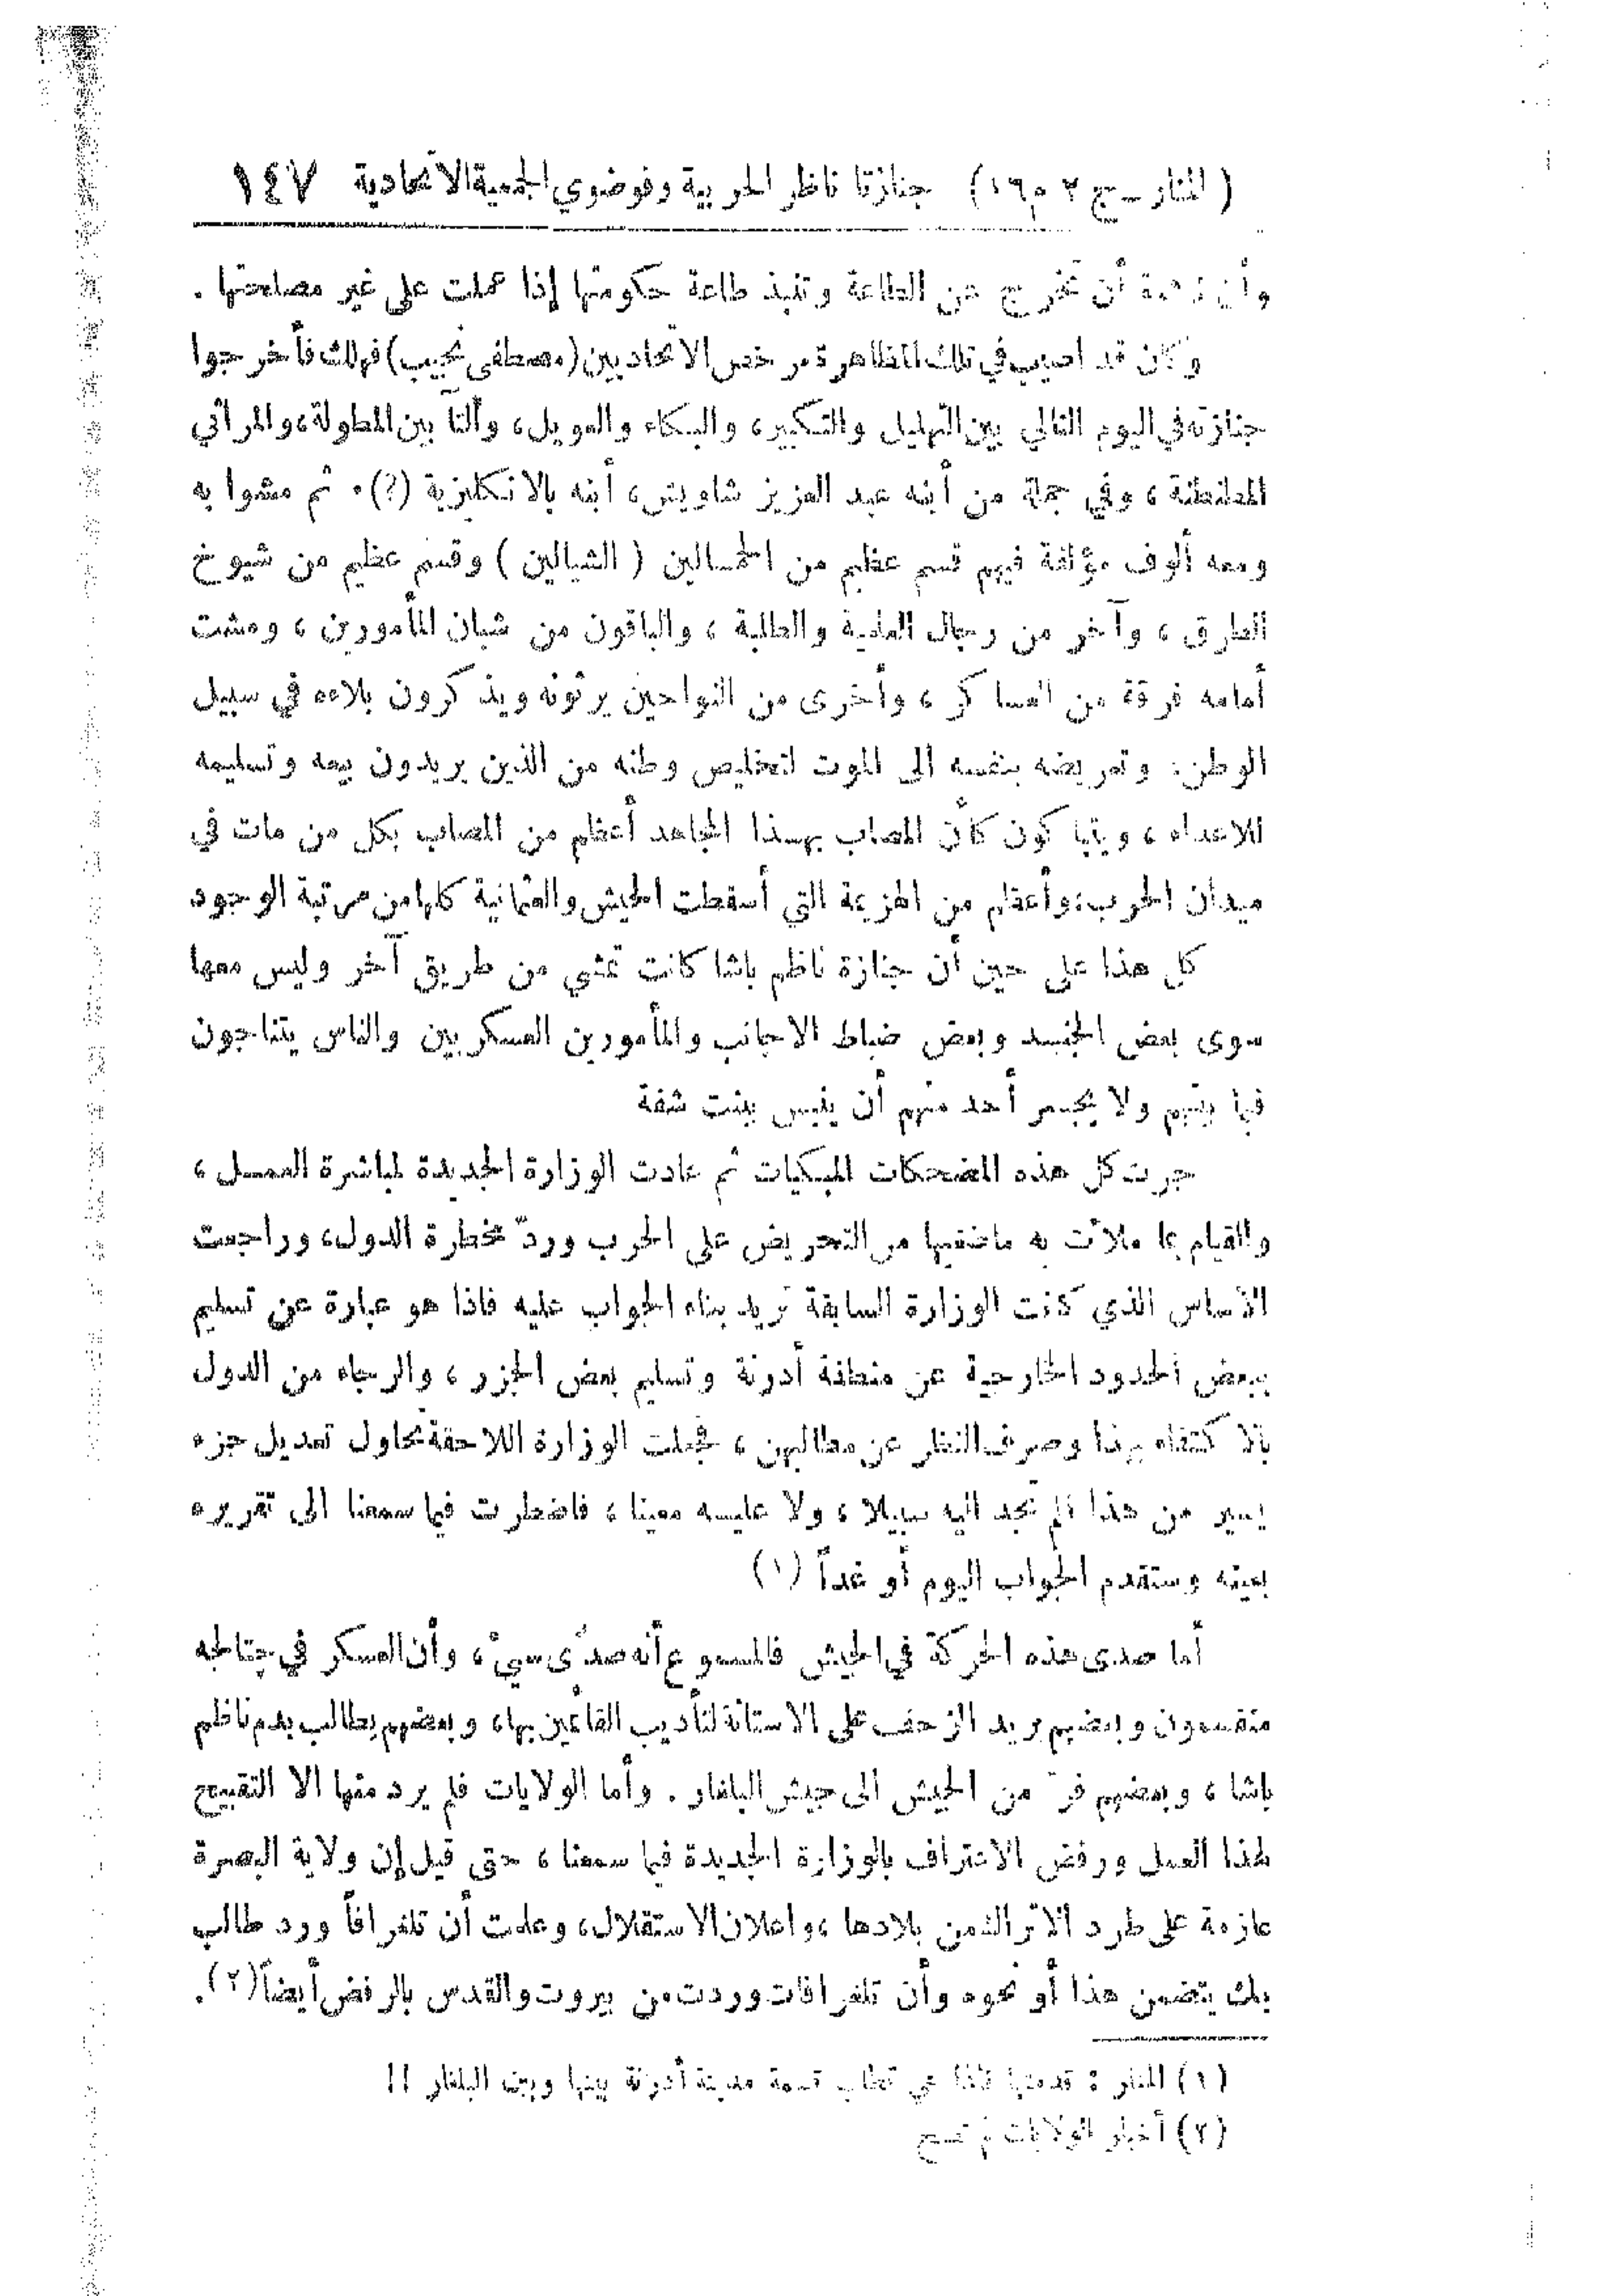 ( المنار – ج ٢ م ١٦ ) جنازتا ناظر الحربية وفوضوي الجمعية الاتحادية ١٤٧
وأن للأمة أن تخرج عن الطاعة وتنبذ طاعة حكومتها إذا عملت على غير مصلحتها .
وكان قد اصيب في تلك المظاهرة مرخص الاتحاديين (مصطفى نجيب) فهلك فأخرجوا
جنازته في اليوم التالي بين التهليل والتكبير، والبكاء والعويل، والتآبين المطولة، والمراثي
المطنطنة ، وفي جملة من أبنه عبد العزيز شاويش، أبنه بالانكليزية (؟) . ثم مشوا به
ومعه ألوف مؤلفة فيهم قسم عظيم من الحمالين ( الشيالين ) وقسم عظيم من شيوخ
الطرق ، وآخر من رجال العلمية والطلبة ، والباقون من شبان المأمورين ، ومشت
أمامه فرقة من العساكر ، وأخرى من النواحين يرثونه ويذكرون بلاءه في سبيل
الوطن، وتعريضه بنفسه الى الموت لتخليص وطنه من الذين يريدون بيعه وتسليمه
للاعداء ، ويتباكون كأن المصاب بهذا المجاهد أعظم من المصاب بكل من مات في
ميدان الحرب، وأعظم من الهزيمة التي أسقطت الجيش والعثمانية كلها من مرتبة الوجود
كل هذا على حين أن جنازة ناظم باشا كانت تمشي من طريق آخر وليس معها
سوى بعض الجنـد وبعض ضباط الاجانب والمأمورين العسكريين والناس يتناجون
فيما بينهم ولا يجسر أحد منهم أن ينبس ببنت شفة
جرت كل هذه المضحكات المبكيات ثم عادت الوزارة الجديدة لمباشرة العمـل ،
والقيام بما ملأت به ماضغيها من التحريض على الحرب وردّ مخطرة الدول، وراجعت
الاساس الذي كانت الوزارة السابقة تريد بناء الجواب عليه فاذا هو عبارة عن تسليم
ببعض الحدود الخارجية عن منطقة أدرنة وتسليم بعض الجزر ، والرجاء من الدول
بالاكتفاء بهذا وصرف النظر عن مطالبهن ، فجعلت الوزارة اللاحقة تحاول تعديل جزء
يسير من هذا فلم تجد اليه سبيلا ، ولا عليـه معينا ، فاضطرت فيما سمعنا الى تقريره
بعينه وستقدم الجواب اليوم أو غداً (١)
أما صدى هذه الحركة في الجيش فالمسموع أنه صدًى سيئ ، وأن العسكر في جتالجه
منقسمون وبعضهم يريد الزحف على الاستانة لتأديب القائمين بها، وبعضهم يطالب بدم ناظم
باشا ، وبعضهم فرّ من الجيش الى جيش البلغار . وأما الولايات فلم يرد منها الا التقبيح
لهذا العمل ورفض الاعتراف بالوزارة الجديدة فيما سمعنا ، حتى قيل إن ولاية البصرة
عازمة على طرد الاتراك من بلادها ، واعلان الاستقلال، وعلمت أن تلغرافاً ورد طالب
بك يتضمن هذا أو نحوه وأن تلغرافات وردت من بيروت والقدس بالرفض أيضاً (٢).
(١) المنار : قدمتها فاذا هي تطلب قسمة مدينة أدرنة بينها وبين البلغار !!
(٢) أخبار الولايات لم تصح